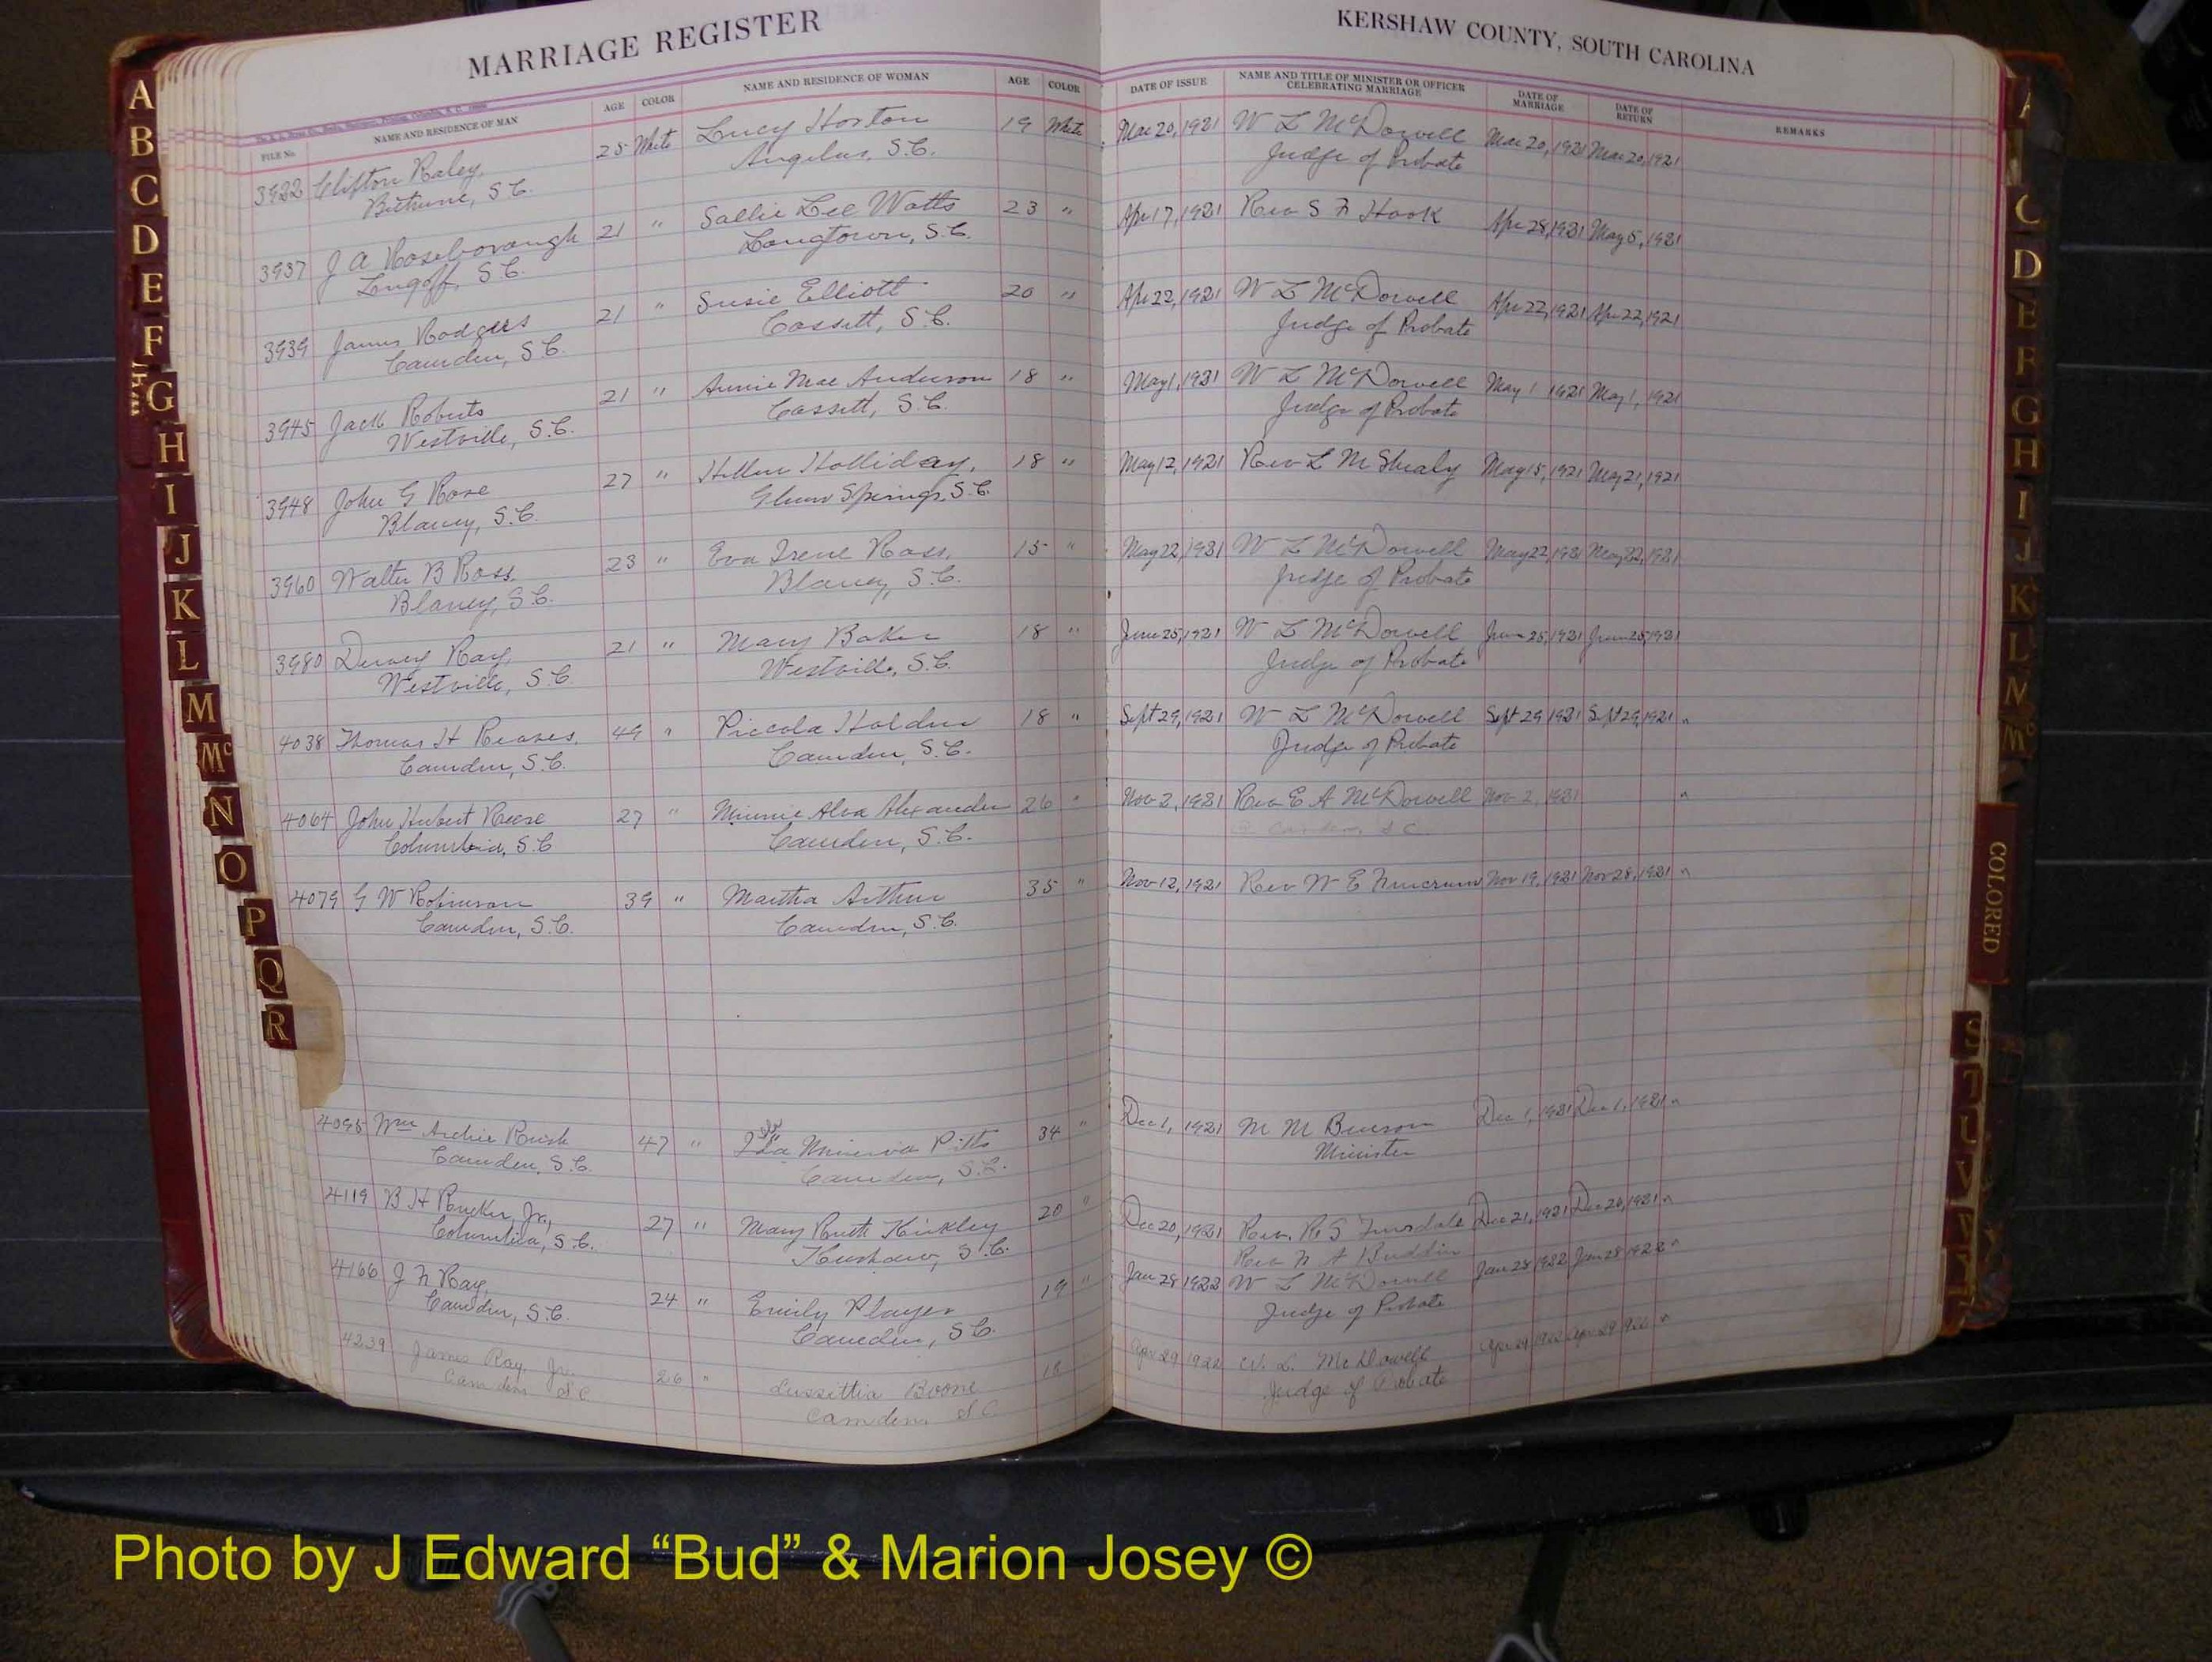 MARRIAGE REGISTER
KERSHAW COUNTY, SOUTH CAROLINA
FILE No. NAME AND RESIDENCE OF MAN AGE COLOR NAME AND RESIDENCE OF WOMAN AGE COLOR DATE OF ISSUE NAME AND TITLE OF MINISTER OR OFFICER CELEBRATING MARRIAGE DATE OF MARRIAGE DATE OF RETURN REMARKS
3922 Clifton Raley, 25 White Lucy Horton 19 White Mar 20, 1921 W L McDowell Mar 20, 1921 Mar 20, 1921
Bethune, S.C. Angelus, S.C. Judge of Probate
3937 J A Roseborough 21 " Sallie Lee Watts 23 " Apr 17, 1921 Rev S F Hook Apr 28, 1921 May 5, 1921
Lugoff, S.C. Longtown, S.C.
3939 James Rodgers 21 " Susie Elliott 20 " Apr 22, 1921 W L McDowell Apr 22, 1921 Apr 22, 1921
Camden, S.C. Cassett, S.C. Judge of Probate
3945 Jack Roberts 21 " Annie Mae Anderson 18 " May 1, 1921 W L McDowell May 1 1921 May 1, 1921
Westville, S.C. Cassett, S.C. Judge of Probate
3948 John G Rose 27 " Hellen Holliday, 18 " May 12, 1921 Rev L M Shealy May 15, 1921 May 21, 1921
Blaney, S.C. Glenn Springs, S.C.
3960 Walter B Ross, 23 " Eva Irene Ross, 15 " May 22, 1921 W L McDowell May 22, 1921 May 22, 1921
Blaney, S.C. Blaney, S.C. Judge of Probate
3980 Dewey Ray, 21 " Mary Baker 18 " June 25, 1921 W L McDowell June 25, 1921 June 25, 1921
Westville, S.C. Westville, S.C. Judge of Probate
4038 Thomas H Reaves, 49 " Piccola Holden 18 " Sept 29, 1921 W L McDowell Sept 29 1921 Sept 29, 1921
Camden, S.C. Camden, S.C. Judge of Probate
4064 John Hubert Reese 27 " Minnie Alva Alexander 26 " Nov 2, 1921 Rev E A McDowell Nov 2, 1921
Columbia, S.C. Camden, S.C.
4079 G W Robinson 39 " Martha Arthur 35 " Nov 12, 1921 Rev W E Nov 19, 1921 Nov 28, 1921
Camden, S.C. Camden, S.C.
4095 Wm Archie Rush 47 " Minerva Pitts 34 " Dec 1, 1921 M M Benson Dec 1, 1921 Dec 1, 1921
Camden, S.C. Camden, S.C. Minister
4119 B H Rucker, Jr., 27 " Mary Ruth Kirkley 20 " Dec 20, 1921 Rev. R S Truesdale Dec 21, 1921 Dec 26, 1921
Columbia, S.C. Kershaw, S.C. Rev
4166 J F Ray, 24 " Emily Player 19 " Jan 28 1922 W L McDowell Jan 28 1922 Jan 28 1922
Camden, S.C. Camden, S.C. Judge of Probate
4239 James Ray, Jr. 26 " Lussittia Boone 18 Apr 29 1922 W. L. McDowell Apr 29 1922 Apr 29
Camden S C Camden, S C Judge of Probate
A
B
C
D
E
F
G
H
I
J
K
L
M
Mc
N
O
P
Q
R
C
D
E
F
G
H
I
J
K
L
M
Mc
COLORED
S
T
U
V
Photo by J Edward “Bud” & Marion Josey ©